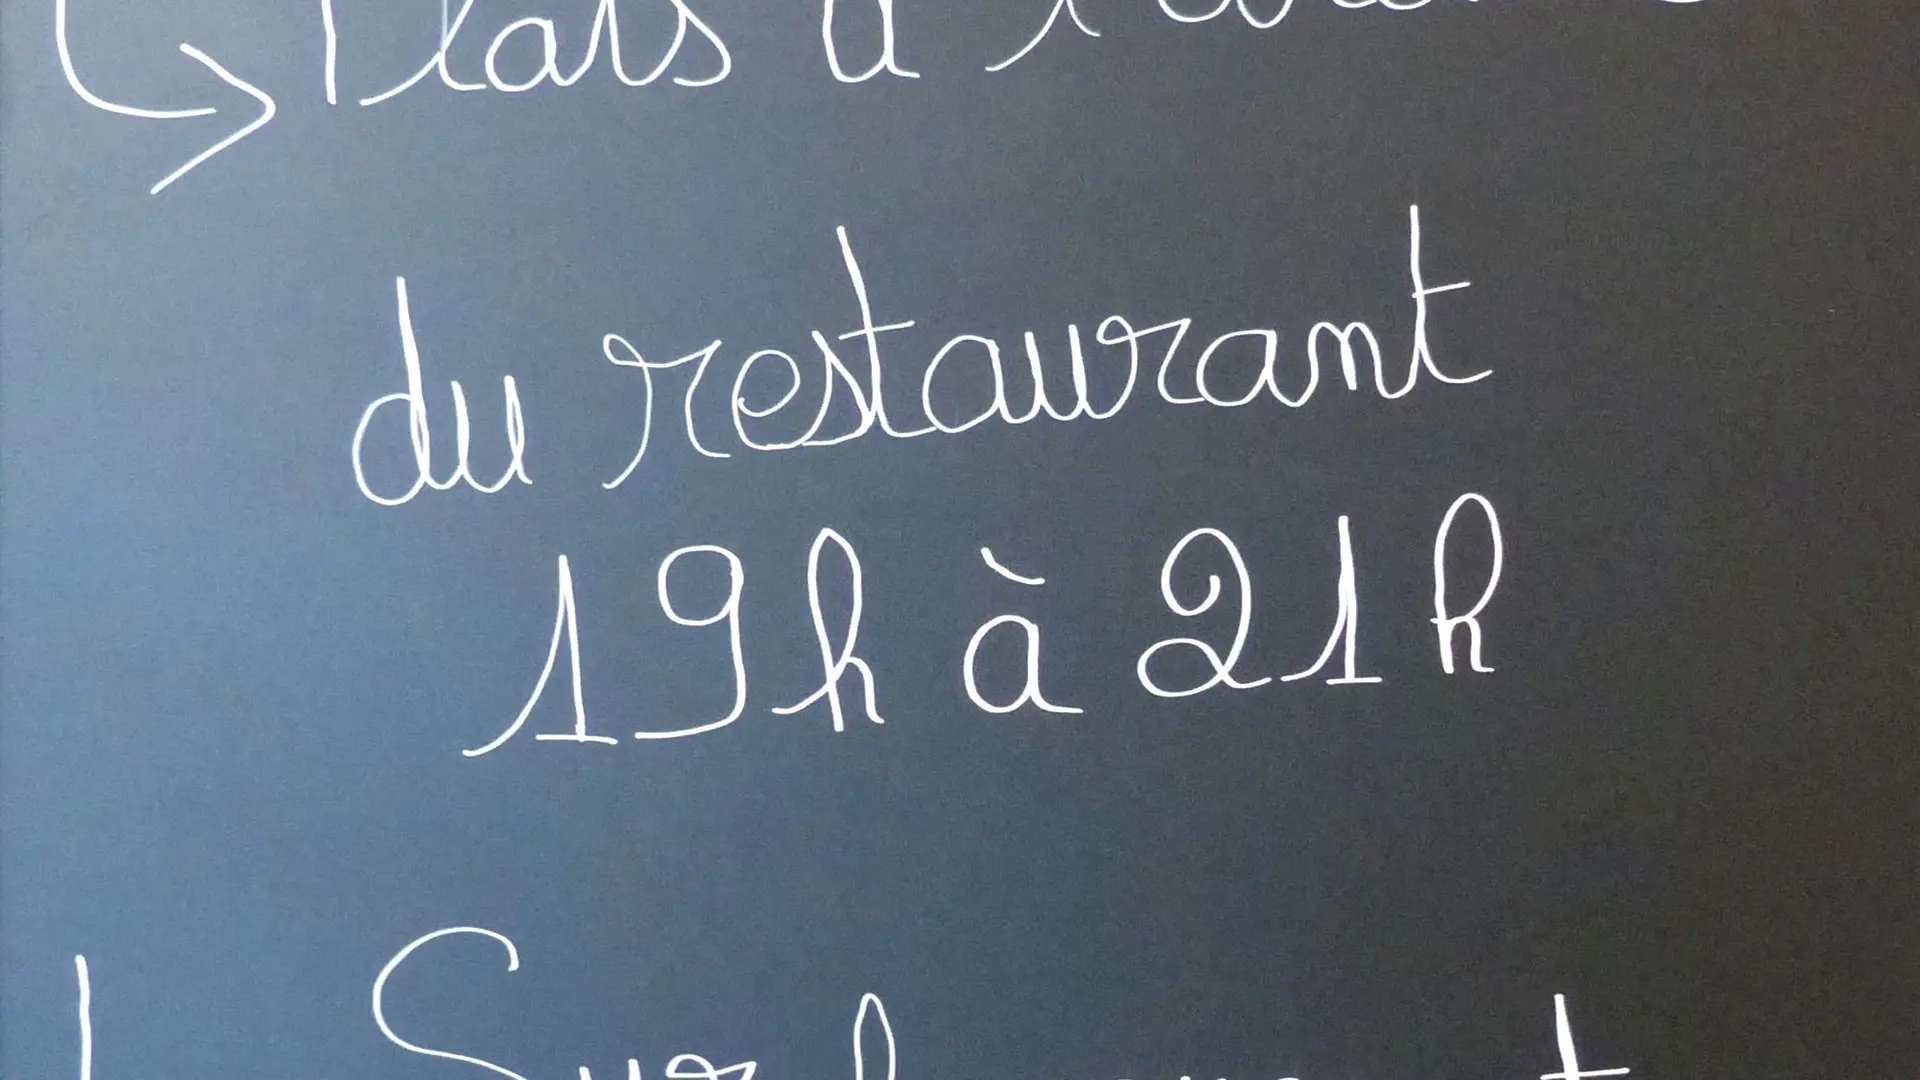 Plats à
du restaurant
19h à 21h
Sur